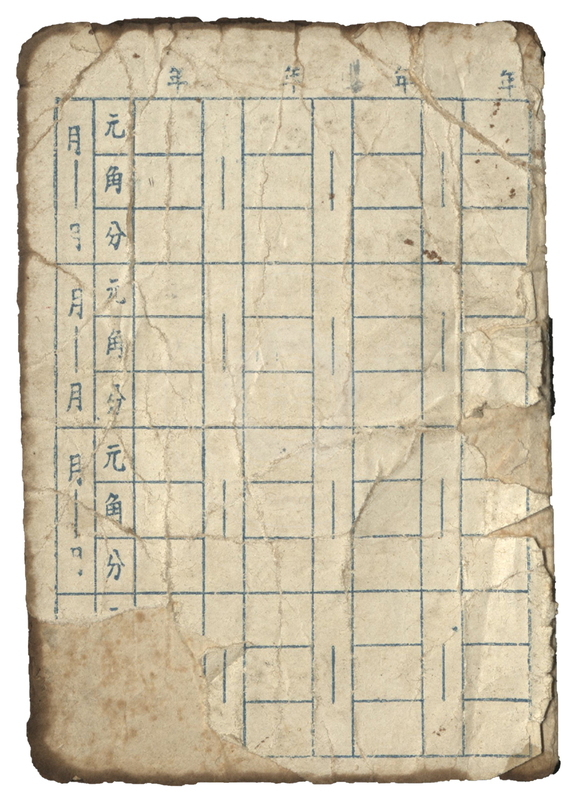 年 年 年 年
元
月 角
分
元
月 角
月 分
元
月 角
分